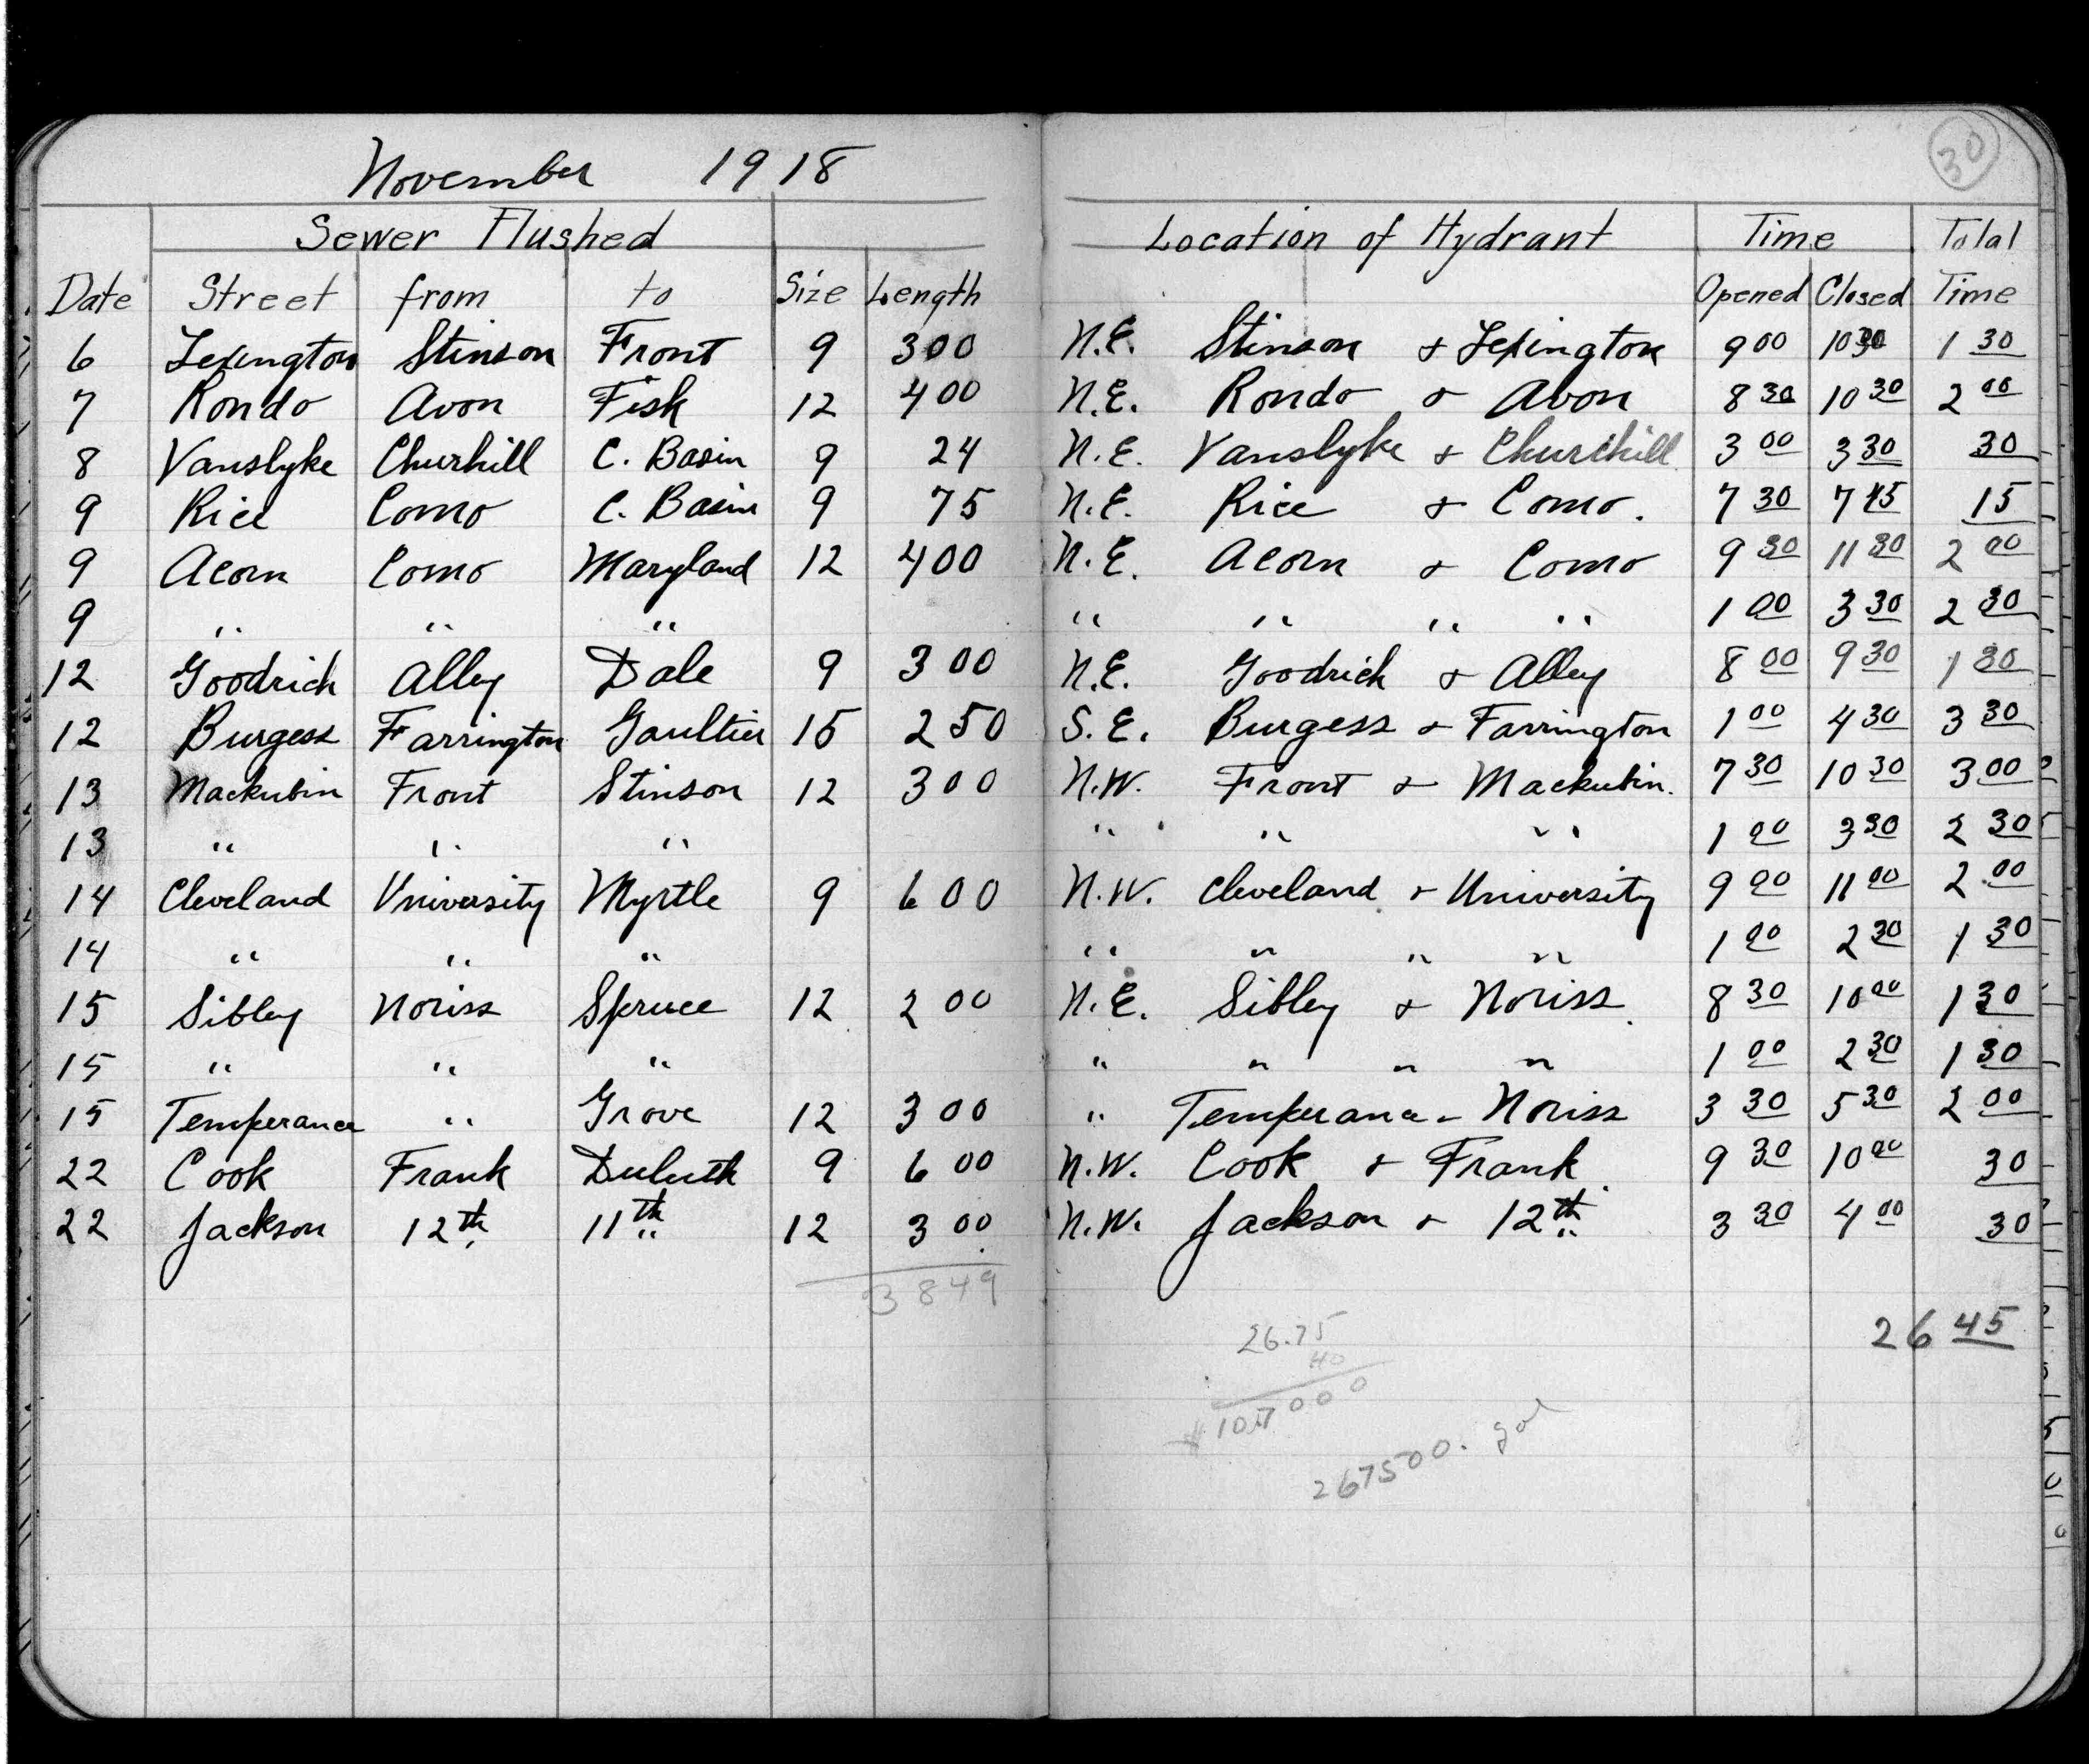 November 1918
30
Sewer Flushed Location of Hydrant Time Total
Date Street from to Size Length Opened Closed Time
6 Lexington Stinson Front 9 300 N.E. Stinson & Lexington 9 00 10 30 1 30
7 Rondo Avon Fisk 12 400 N.E. Rondo & Avon 8 30 10 30 2 00
8 Vanslyke Churhill C. Basin 9 24 N.E. Vanslyke & Churchill 3 00 3 30 30
9 Rice Como C. Basin 9 75 N.E. Rice & Como. 7 30 7 45 15
9 Acorn Como Maryland 12 400 N.E. Acorn & Como 9 30 11 30 2 00
9 " " " " " " " 1 00 3 30 2 30
12 Goodrich Alley Dale 9 300 N.E. Goodrich & Alley 8 00 9 30 1 30
12 Burgess Farrington Gaultier 15 250 S.E. Burgess & Farrington 1 00 4 30 3 30
13 Mackubin Front Stinson 12 300 N.W. Front & Mackubin. 7 30 10 30 3 00
13 " " " " " " 1 00 3 30 2 30
14 Cleveland University Myrtle 9 600 N.W. Cleveland & University 9 00 11 00 2 00
14 " " " " " " " 1 00 2 30 1 30
15 Sibley Noriss Spruce 12 200 N.E. Sibley & Noriss. 8 30 10 00 1 30
15 " " " " " " " 1 00 2 30 1 30
15 Temperance " Grove 12 300 " Temperance - Noriss 3 30 5 30 2 00
22 Cook Frank Duluth 9 600 N.W. Cook & Frank 9 30 10 00 30
22 Jackson 12th 11th 12 300 N.W. Jackson & 12th 3 30 4 00 30
3849
26 45
26.75
40
$10.7000
267500. gal